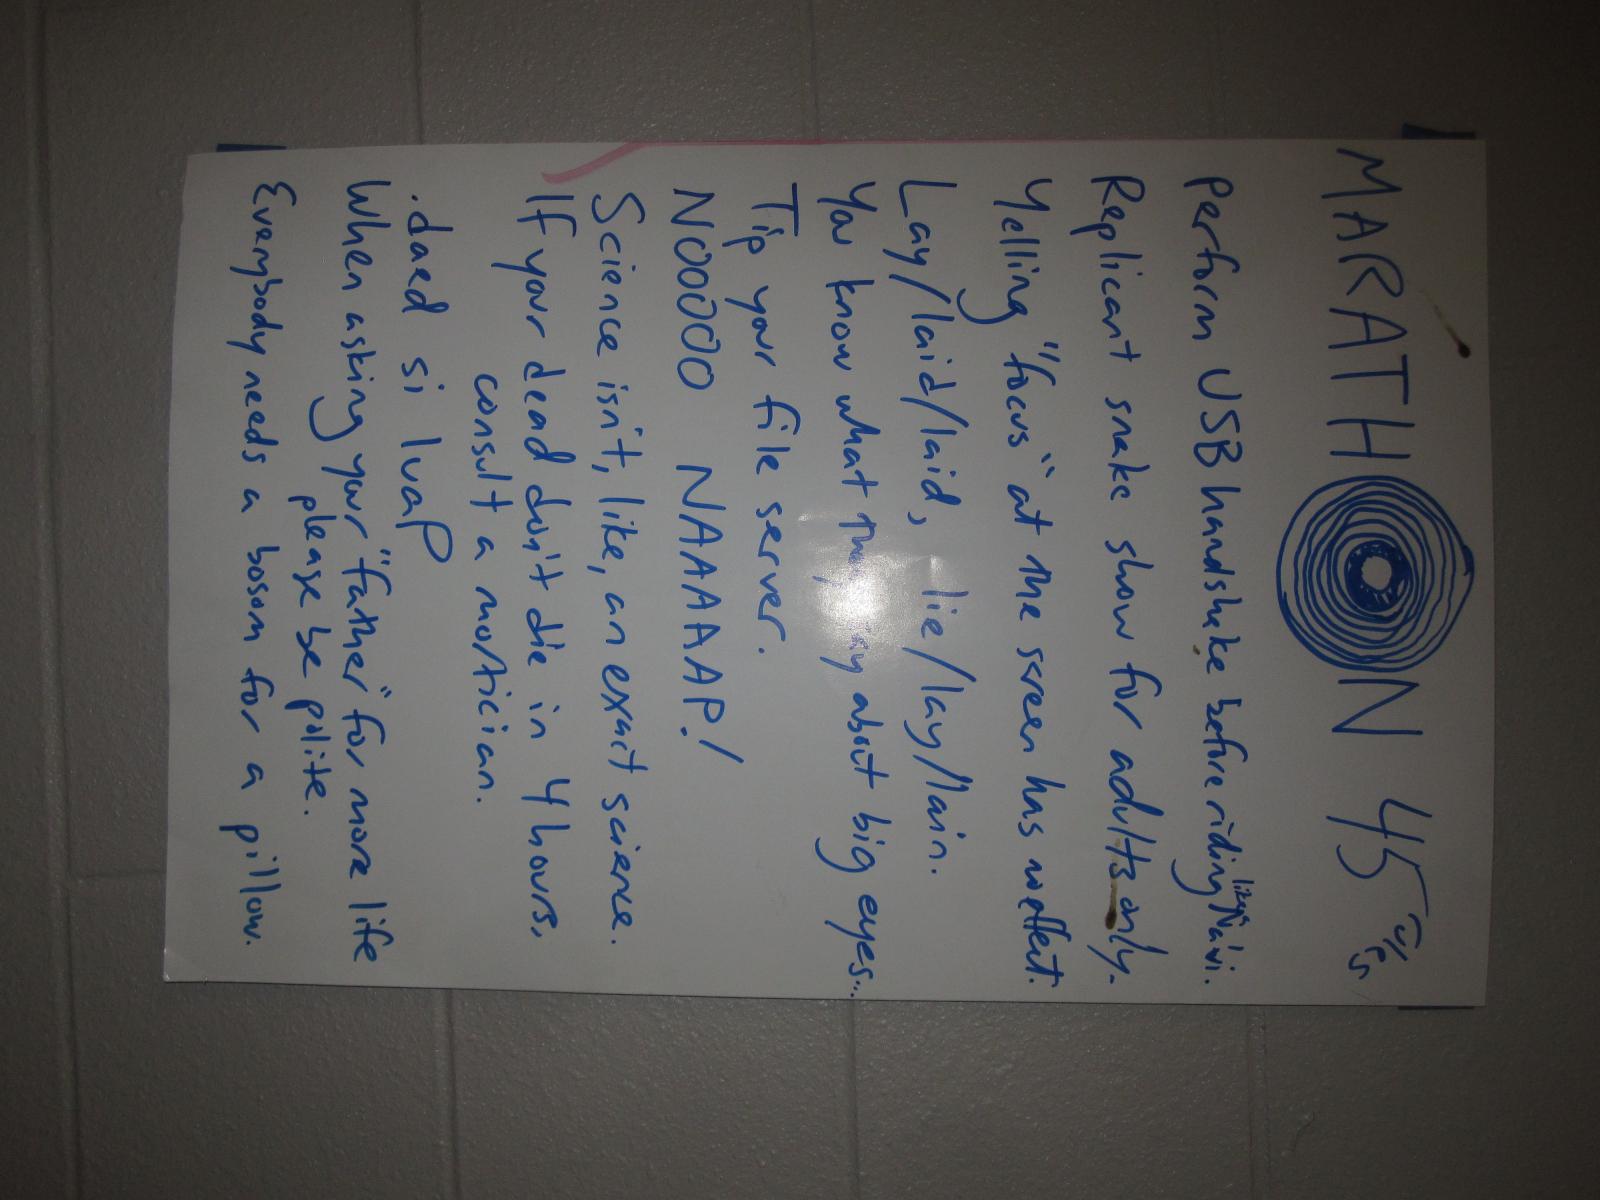 MARATHON 45
Perform USB handshake before riding like a Na'vi.
Replicant snake show for adults only.
Yelling "focus" at the screen has no effect.
Lay/laid/laid, lie/lay/lain.
You know what they say about big eyes...
Tip your file server.
NOOOOO NAAAAAP!
Science isn't, like, an exact science.
If your dead don't die in 4 hours,
consult a mortician.
.daed si luaP
When asking your "father" for more life
please be polite.
Everybody needs a bosom for a pillow.